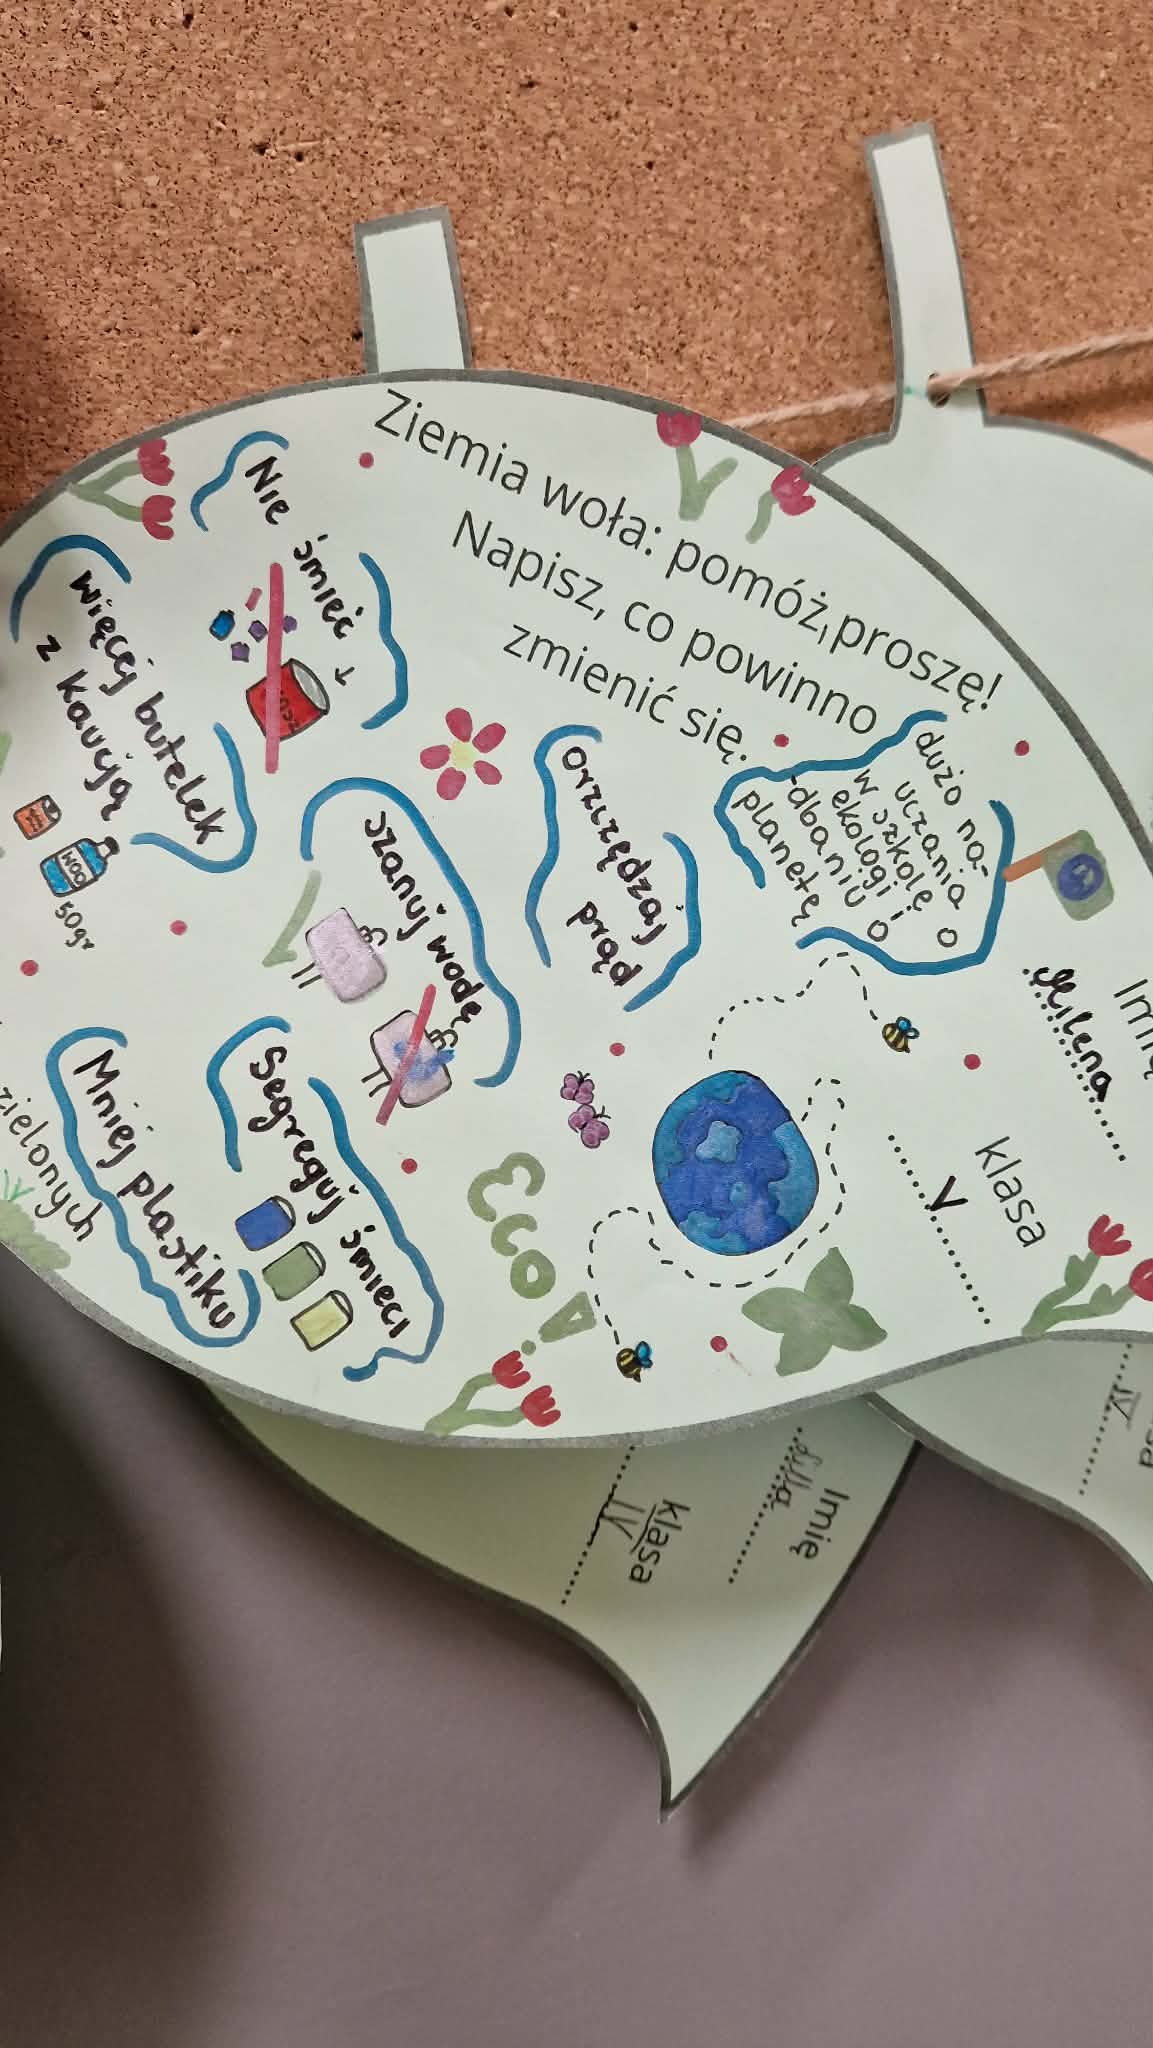 Ziemia woła: pomóż, proszę!
Napisz, co powinno
zmienić się.
Nie śmieć
więcej butelek
z kaucją
WOO
50gr
szanuj wodę
orzczędzaj
prąd
dużo na-
uczania
w szkole
ekologi i
dbaniu o
planetę
Segreguj śmieci
Mniej plastiku
zielonych
Eco!
Imię
Milena
klasa
V
Imię
klasa
IV
IV